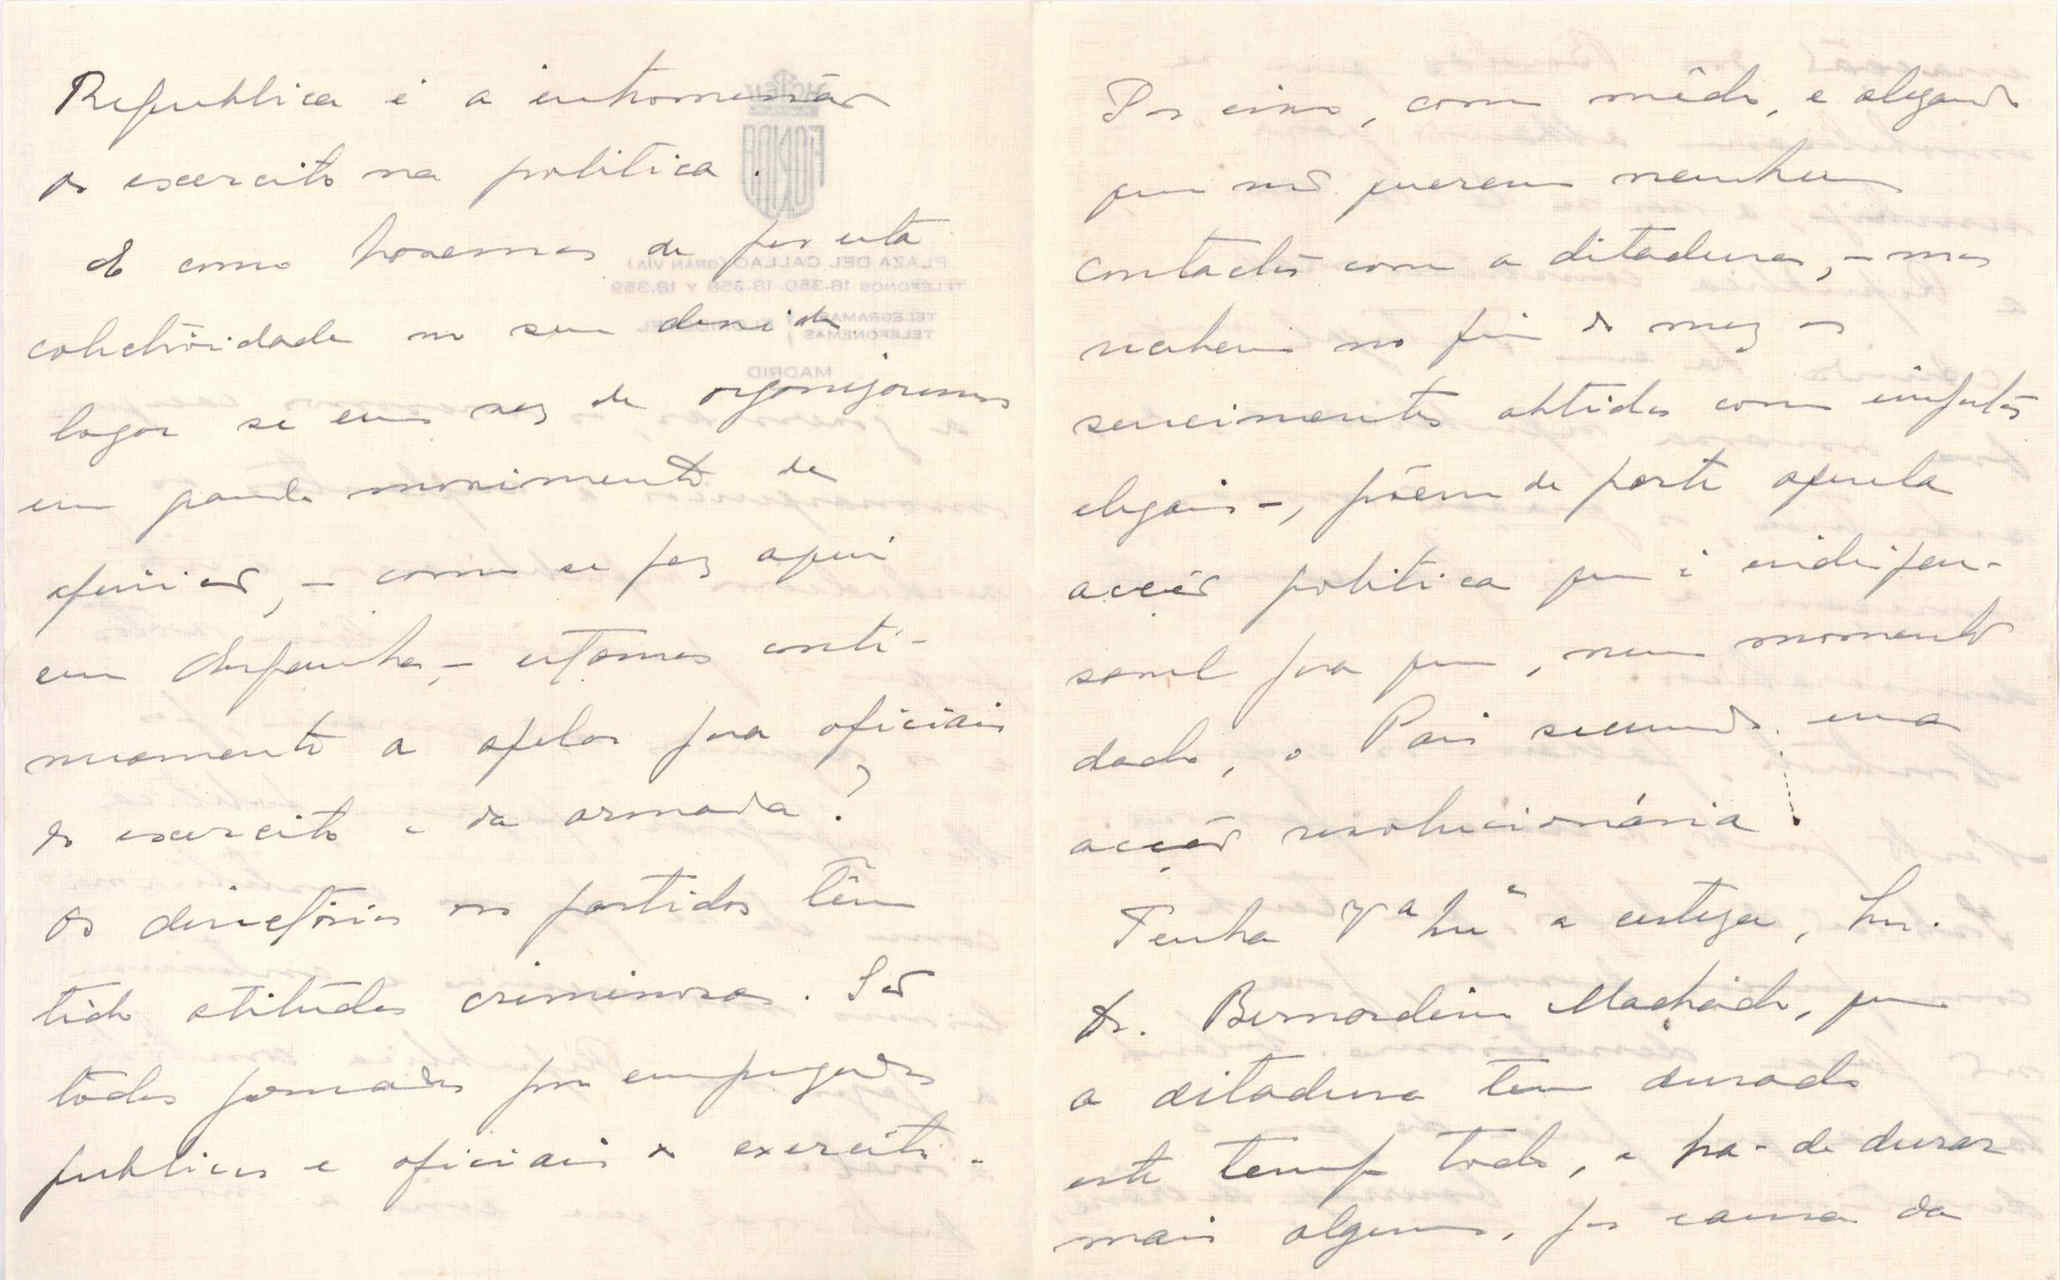 Republica é a intromissão
do exercito na politica.
E como havemos de pôr esta
colectividade no seu devido
logar se em vez de organizarmos
um grande movimento de
opinião, – como se fez aqui
em Espanha, – estamos conti-
nuamente a apelar para oficiais
do exercito e da armada?
Os directórios dos partidos têm
tido atitudes criminosas. São
todos formados por empregados
publicos e oficiais do exercito.
Por isso, com mêdo, e alegando
que não querem nenhum
contacto com a ditadura, – mas
recebem no fim do mez os
vencimentos obtidos com impostos
ilegais –, põem de parte aquela
acção politica que é indispen-
savel para que, num momento
dado, o Pais secunde uma
acção revolucionária.
Tenha V.ª Ex.ª a certeza, Snr.
Dr. Bernardino Machado, que
a ditadura tem durado
este tempo todo, e ha-de durar
mais algum, por causa da
HOTEL
FLORIDA
PLAZA DEL CALLAO (GRAN VIA)
TELEFONOS 18-350, 18-358 Y 18-359
TELEGRAMAS
TELEFONEMAS
MADRID